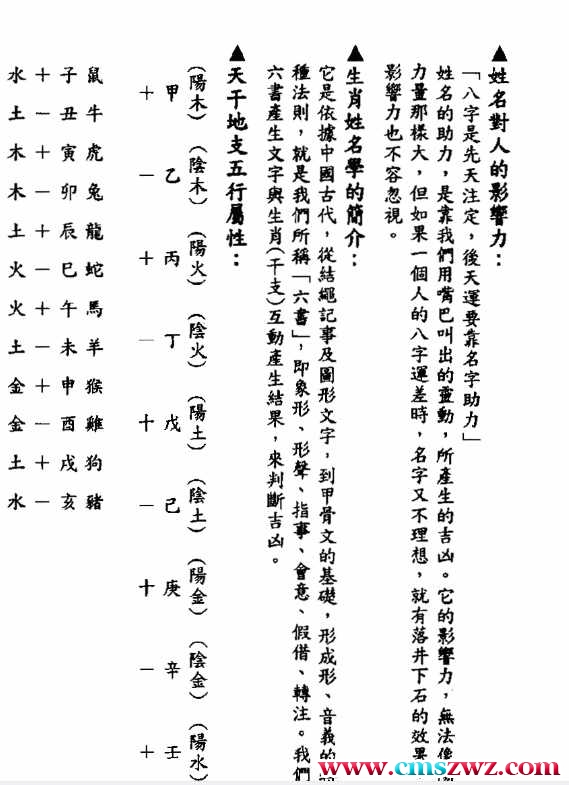 ▲姓名對人的影響力：
「八字是先天注定，後天運要靠名字助力」
姓名的助力，是靠我們用嘴巴叫出的靈動，所產生的吉凶。它的影響力，無法像
力量那樣大，但如果一個人的八字運差時，名字又不理想，就有落井下石的效果
影響力也不容忽視。
▲生肖姓名學的簡介：
它是依據中國古代，從結繩記事及圖形文字，到甲骨文的基礎，形成形、音義的
種法則，就是我們所稱「六書」，即象形、形聲、指事、會意、假借、轉注。我們
六書產生文字與生肖(干支)互動產生結果，來判斷吉凶。
▲天干地支五行屬性：
(陽木) (陰木) (陽火) (陰火) (陽土) (陰土) (陽金) (陰金) (陽水)
甲 乙 丙 丁 戊 己 庚 辛 壬
＋ － ＋ － ＋ － ＋ － ＋
鼠 牛 虎 兔 龍 蛇 馬 羊 猴 雞 狗 豬
子 丑 寅 卯 辰 巳 午 未 申 酉 戌 亥
＋ － ＋ － ＋ － ＋ － ＋ － ＋ －
水 土 木 木 土 火 火 土 金 金 土 水
www.cmszwz.com